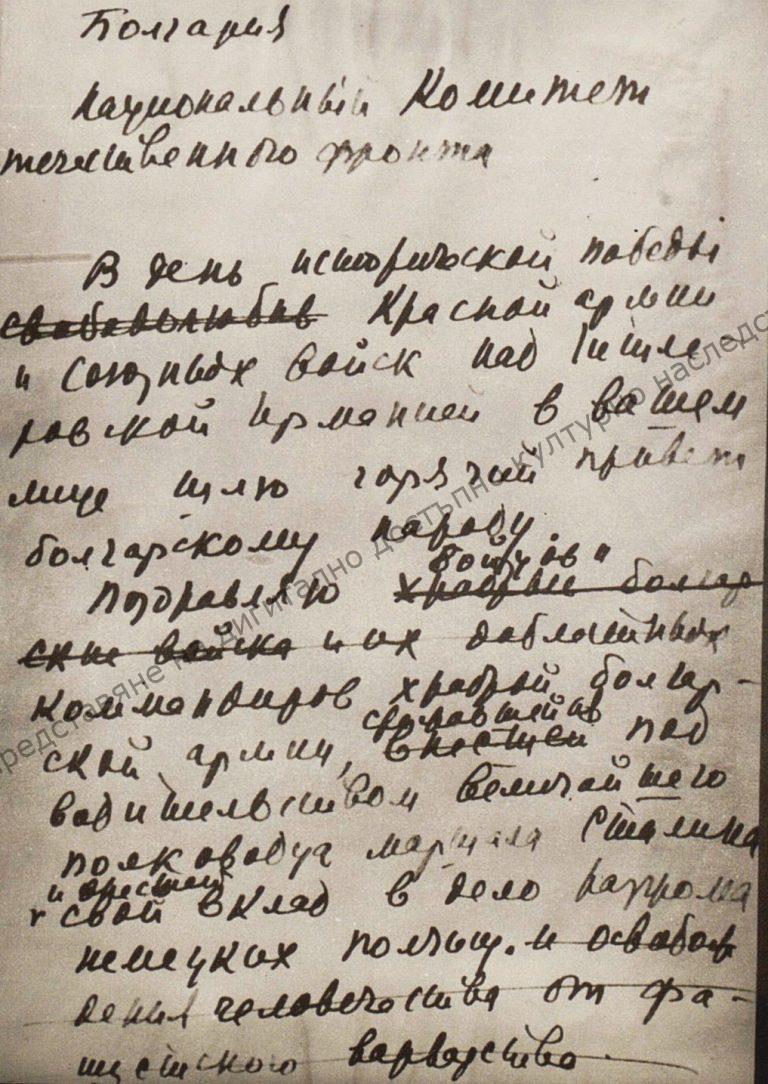 Болгария
Национальный Комитет
течественного фронта
В день исторической победы
свободолюбив Красной армии
и союзных войск над Гитле
ровской Германией в вашем
лице шлю горячий привет
болгарскому народу.
бойцов и
Поздравляю храбрые болгар
ские войска и их доблестных
коммандиров храброй болгар-
сражавшейся
ской армии, внесшей под
водительством величайшего
полководца маршала Сталина
и внесшей
свой вклад в дело разгрома
немецких полчищ. и освобож
дения человечества от фа-
шистского варварства
представяне на дигитално достъпно културно наследст